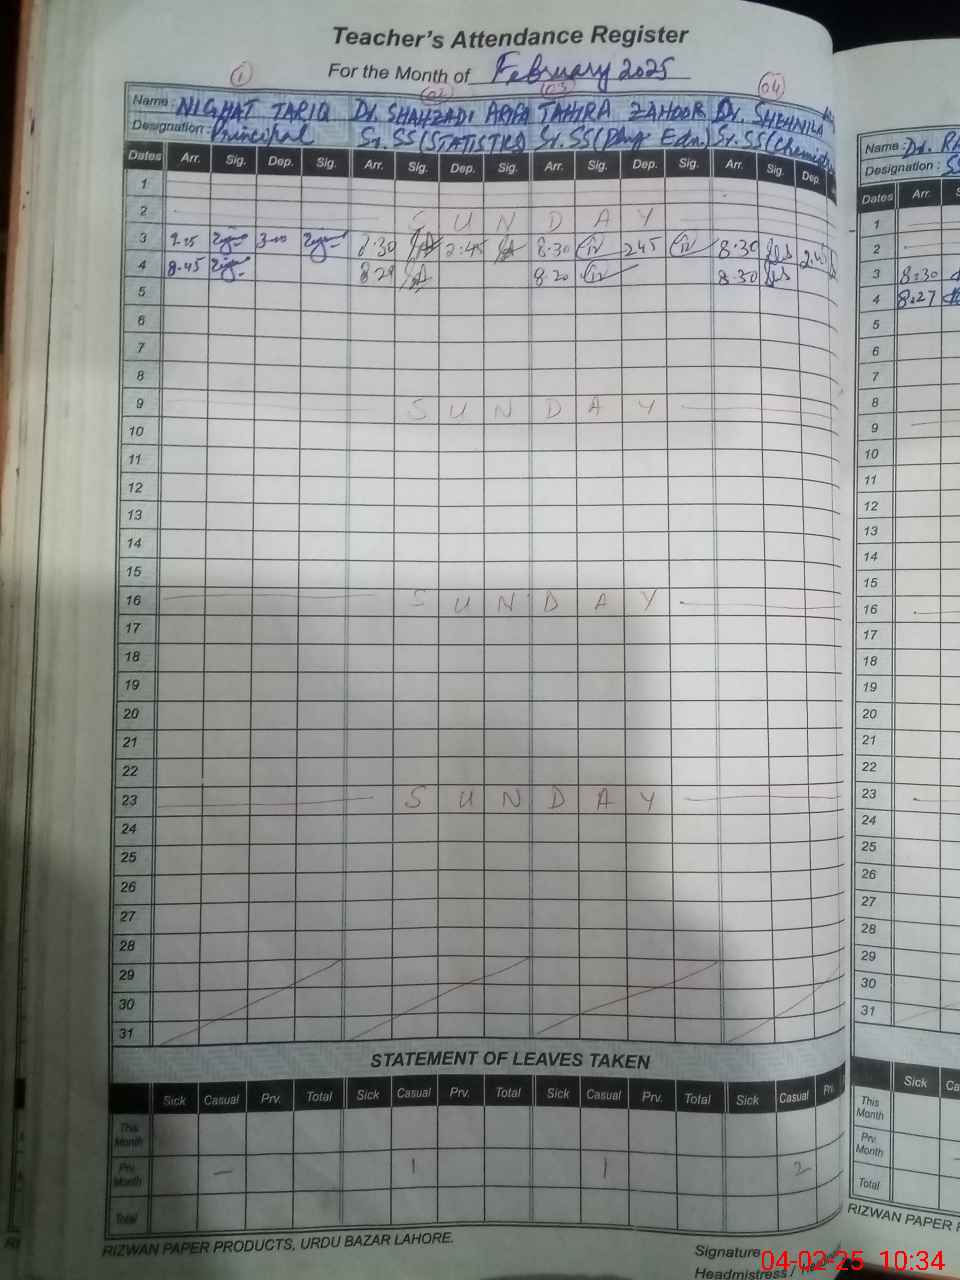 Teacher's Attendance Register
For the Month of February 2025
1 02 03 04
Name : NIGHAT TARIQ Dr. SHAHZADI ARIFA TAHIRA ZAHOOR Dr. SHEHNILA
Designation : Principal Sr. SS (STATISTICS) Sr. SS (Phy Edn.) Sr. SS (Chemistry
Dates Arr. Sig. Dep. Sig. Arr. Sig. Dep. Sig. Arr. Sig. Dep. Sig. Arr. Sig. Dep.
1
2 S U N D A Y
3 9.25 3-00 8.30 2:45 8.30 245 8.30 2.45
4 8.45 8.29 8.20 8.30
5
6
7
8
9 S U N D A Y
10
11
12
13
14
15
16 S U N D A Y
17
18
19
20
21
22
23 S U N D A Y
24
25
26
27
28
29
30
31
STATEMENT OF LEAVES TAKEN
Sick Casual Prv. Total Sick Casual Prv. Total Sick Casual Prv. Total Sick Casual Prv.
This Month
Prv. Month – 1 1 2
Total
RIZWAN PAPER PRODUCTS, URDU BAZAR LAHORE.
Signature
Headmistress /
Name : Dr. RA
Designation : SS
Dates Arr.
1
2
3 8:30
4 8.27
5
6
7
8
9
10
11
12
13
14
15
16
17
18
19
20
21
22
23
24
25
26
27
28
29
30
31
Sick Ca
This Month
Prv. Month
Total
RIZWAN PAPER
04-02-25 10:34